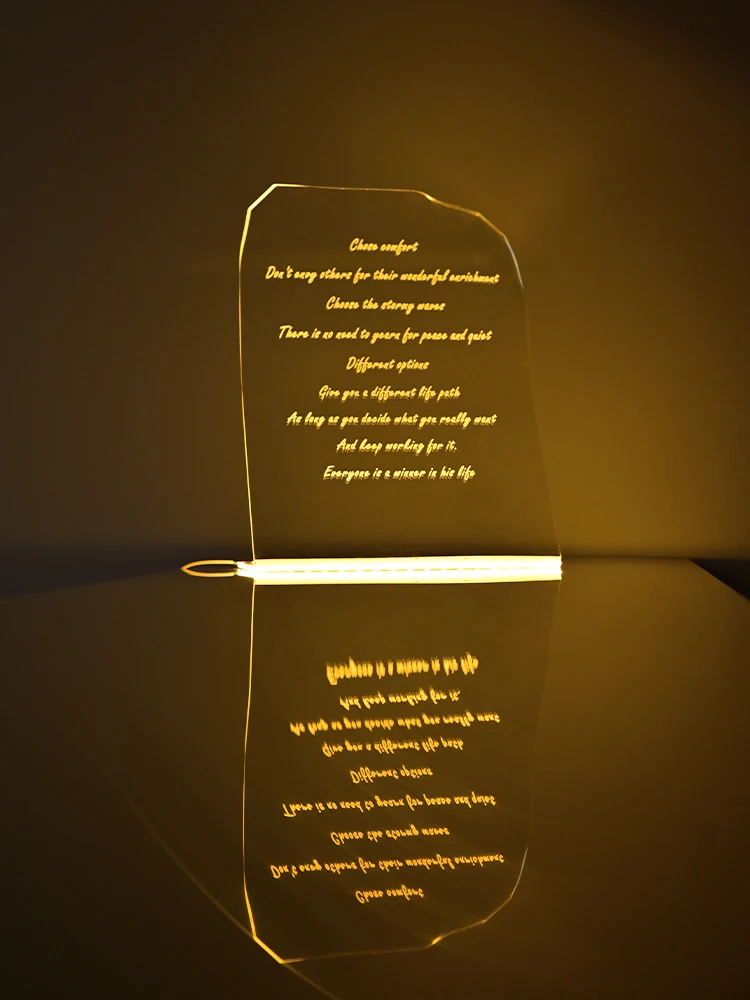 Chose comfort
Don't envy others for their wonderful enrichment
Choose the stormy waves
There is no need to yearn for peace and quiet
Different options
Give you a different life path
As long as you decide what you really want
And keep working for it.
Everyone is a winner in his life